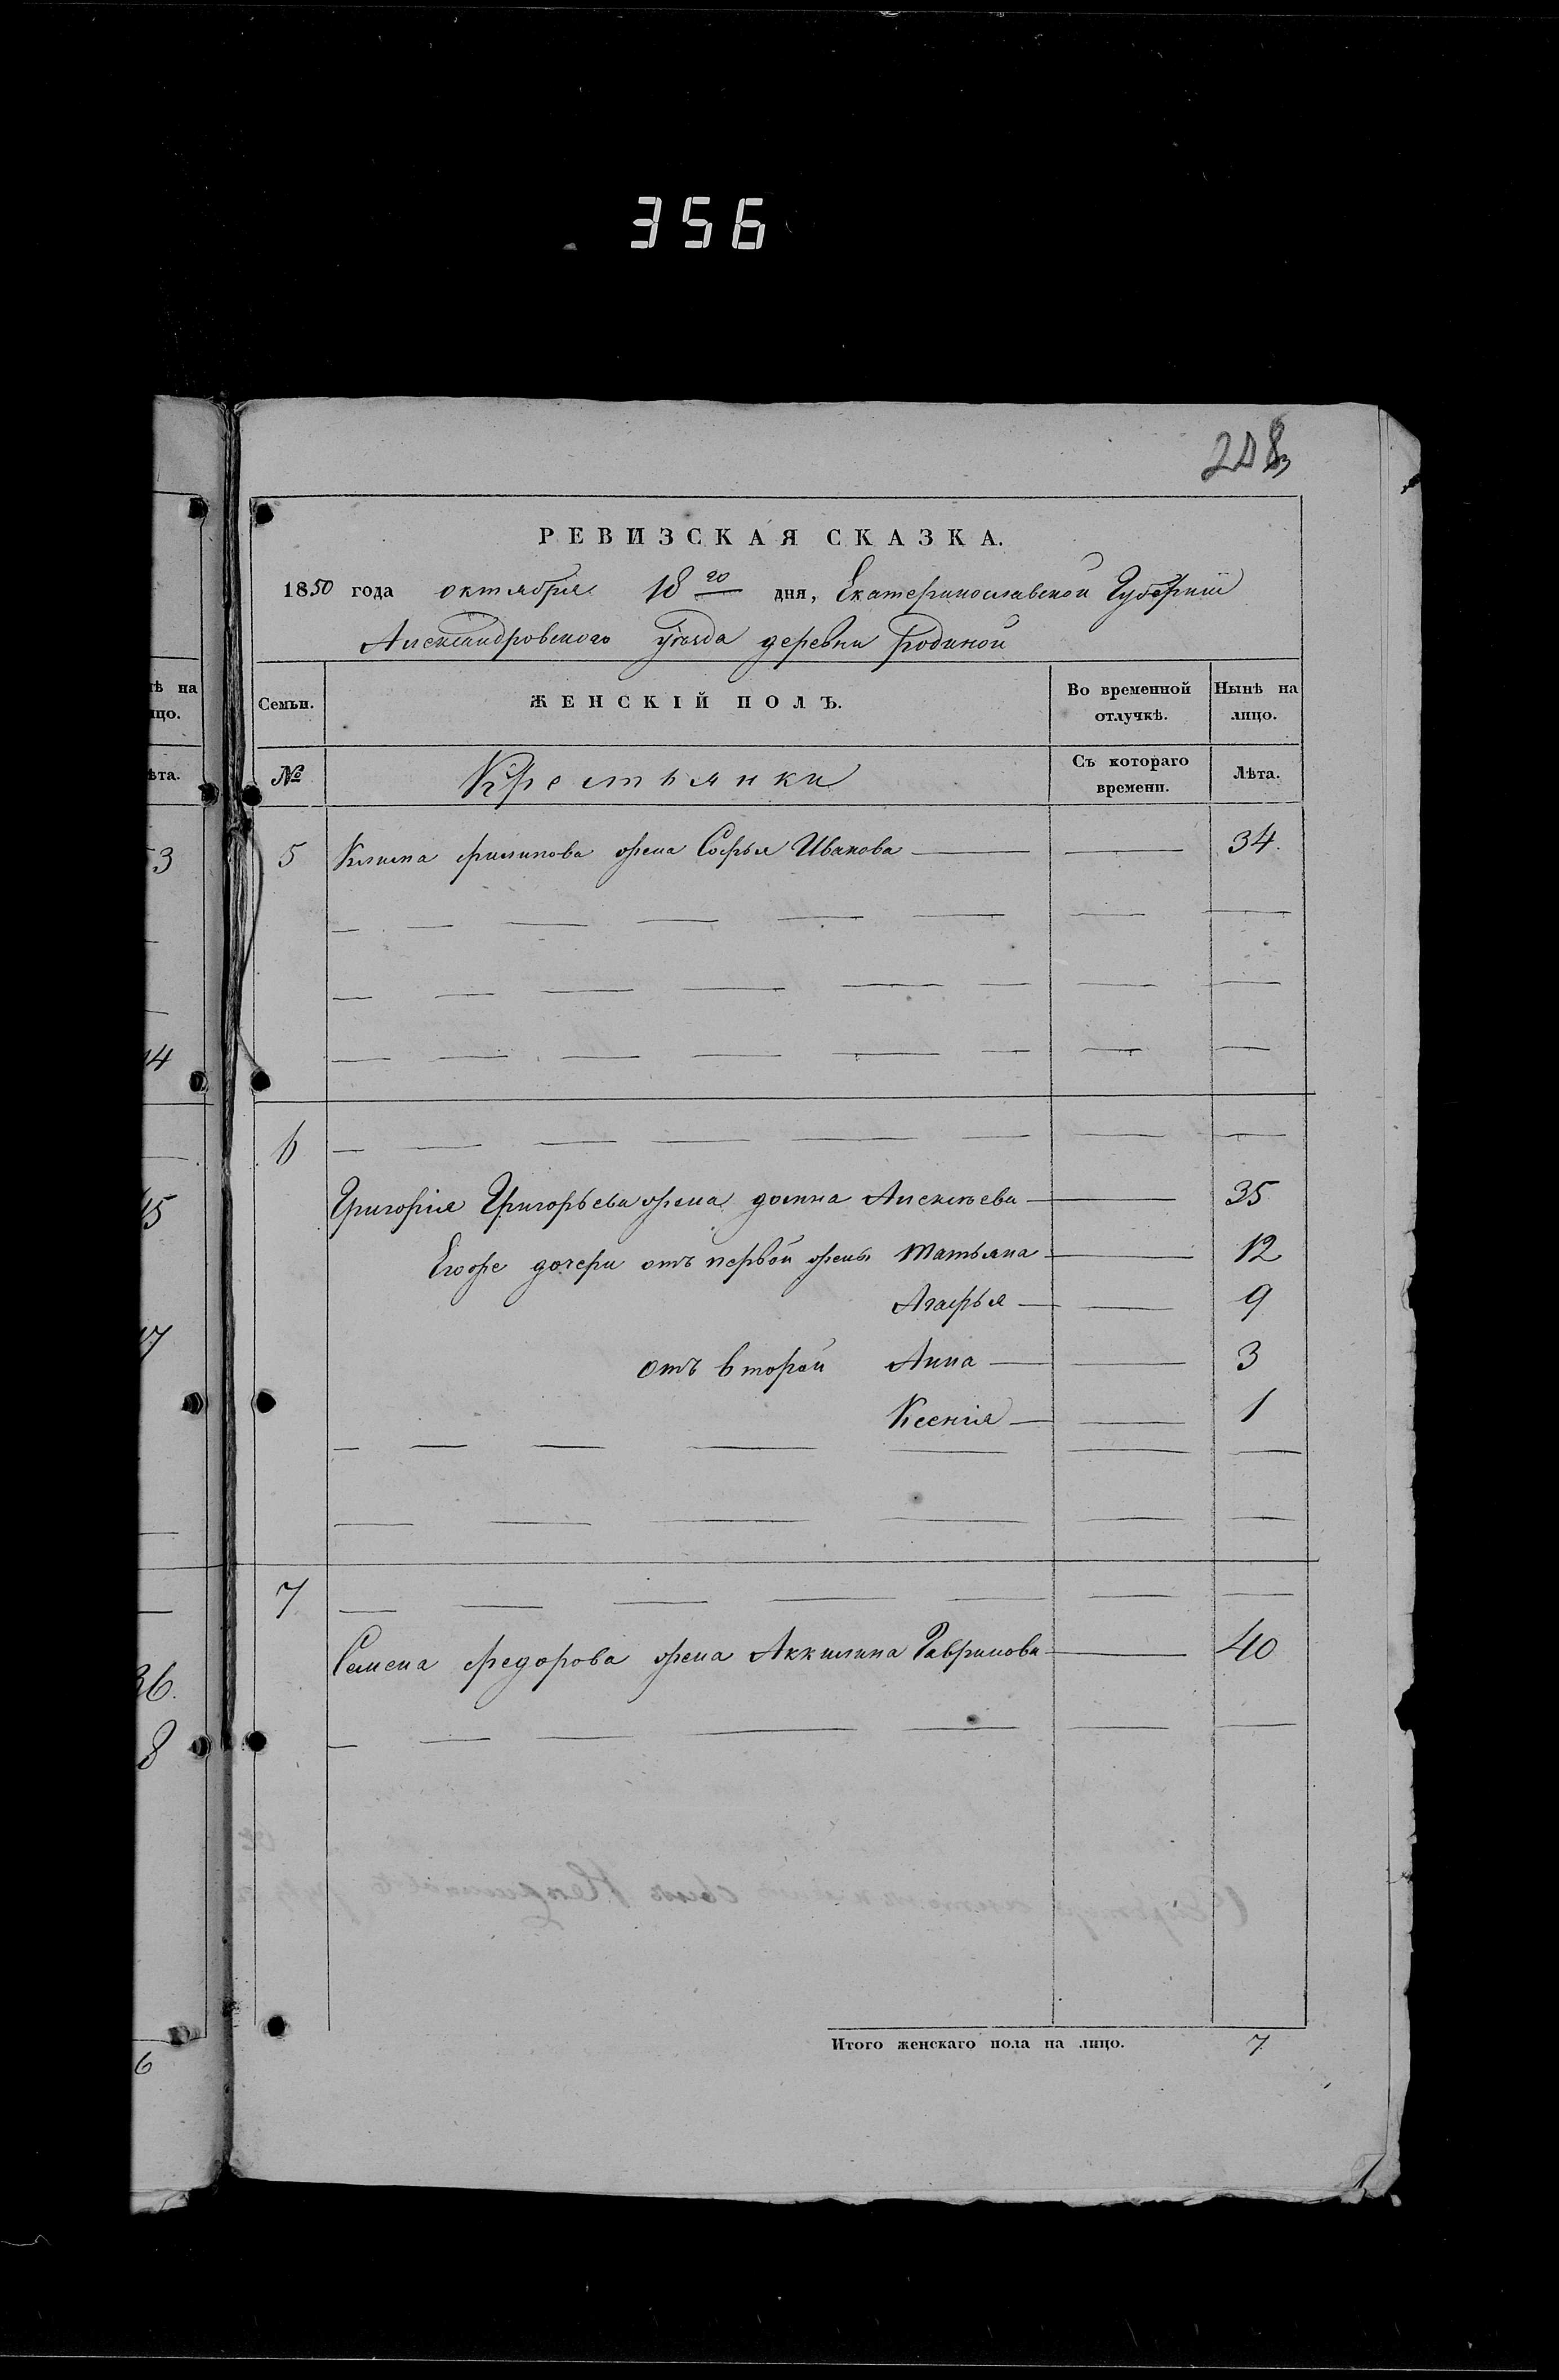 356
208
РЕВИЗСКАЯ СКАЗКА.
1850 года октября 18го дня, Екатеринославской Губерніи
Александровского уѣзда деревни Родиной
Семьи. ЖЕНСКІЙ ПОЛЪ. Во временной отлучкѣ. Нынѣ на лицо.
№ Крестьянки Съ котораго времени. Лѣта.
5 Клима филипова жена Софья Иванова 34.
6
Григорія Григорьева жена домна Алексѣева 35
Егоже дочери отъ первой жены Татьяна 12
Агафья 9
отъ второй Анна 3
Ксенія 1
7
Семена федорова жена Аккилина Гаврилова 40
Итого женскаго пола на лицо. 7
тѣ на
ицо.
ѣта.
53
14
45
17
36.
8
6